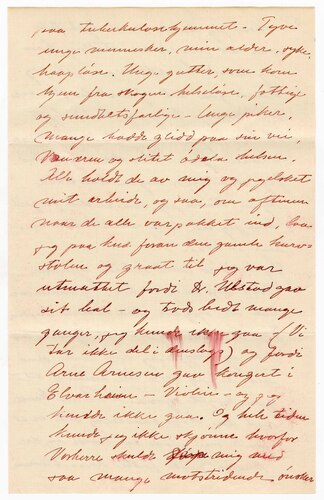 paa tuberkulosehjemmet. Tyve
unge mennesker, min alder, syke,
haapløse. Unge gutter, som kom
hjem fra skogen helseløse, fattige
og sundhetsfarlige - Unge piker,
Mange hadde glidd paa sin vei,
og slitet ødela helsen.
Alle holdt de av mig og pøelsket
mit arbeide, og saa, om aftenen
naar de alle var pakket ind, laa
jeg paa knæ foran den gamle kurv-
stolen og graat til jeg var
utmattet fordi Ulstad gav
sit bal - og trods bedt mange
ganger, jeg kunde ikke gaa - (Vi
tar ikke del i dansing) og fordi
Arne Arnesen gav konsert i
Elvarheim - Violin - og jeg
kunde ikke gaa. Og hele tiden
kunde jeg ikke skjønne hvorfor
Vorherre skulde mig med
saa mange motstridende ønsker